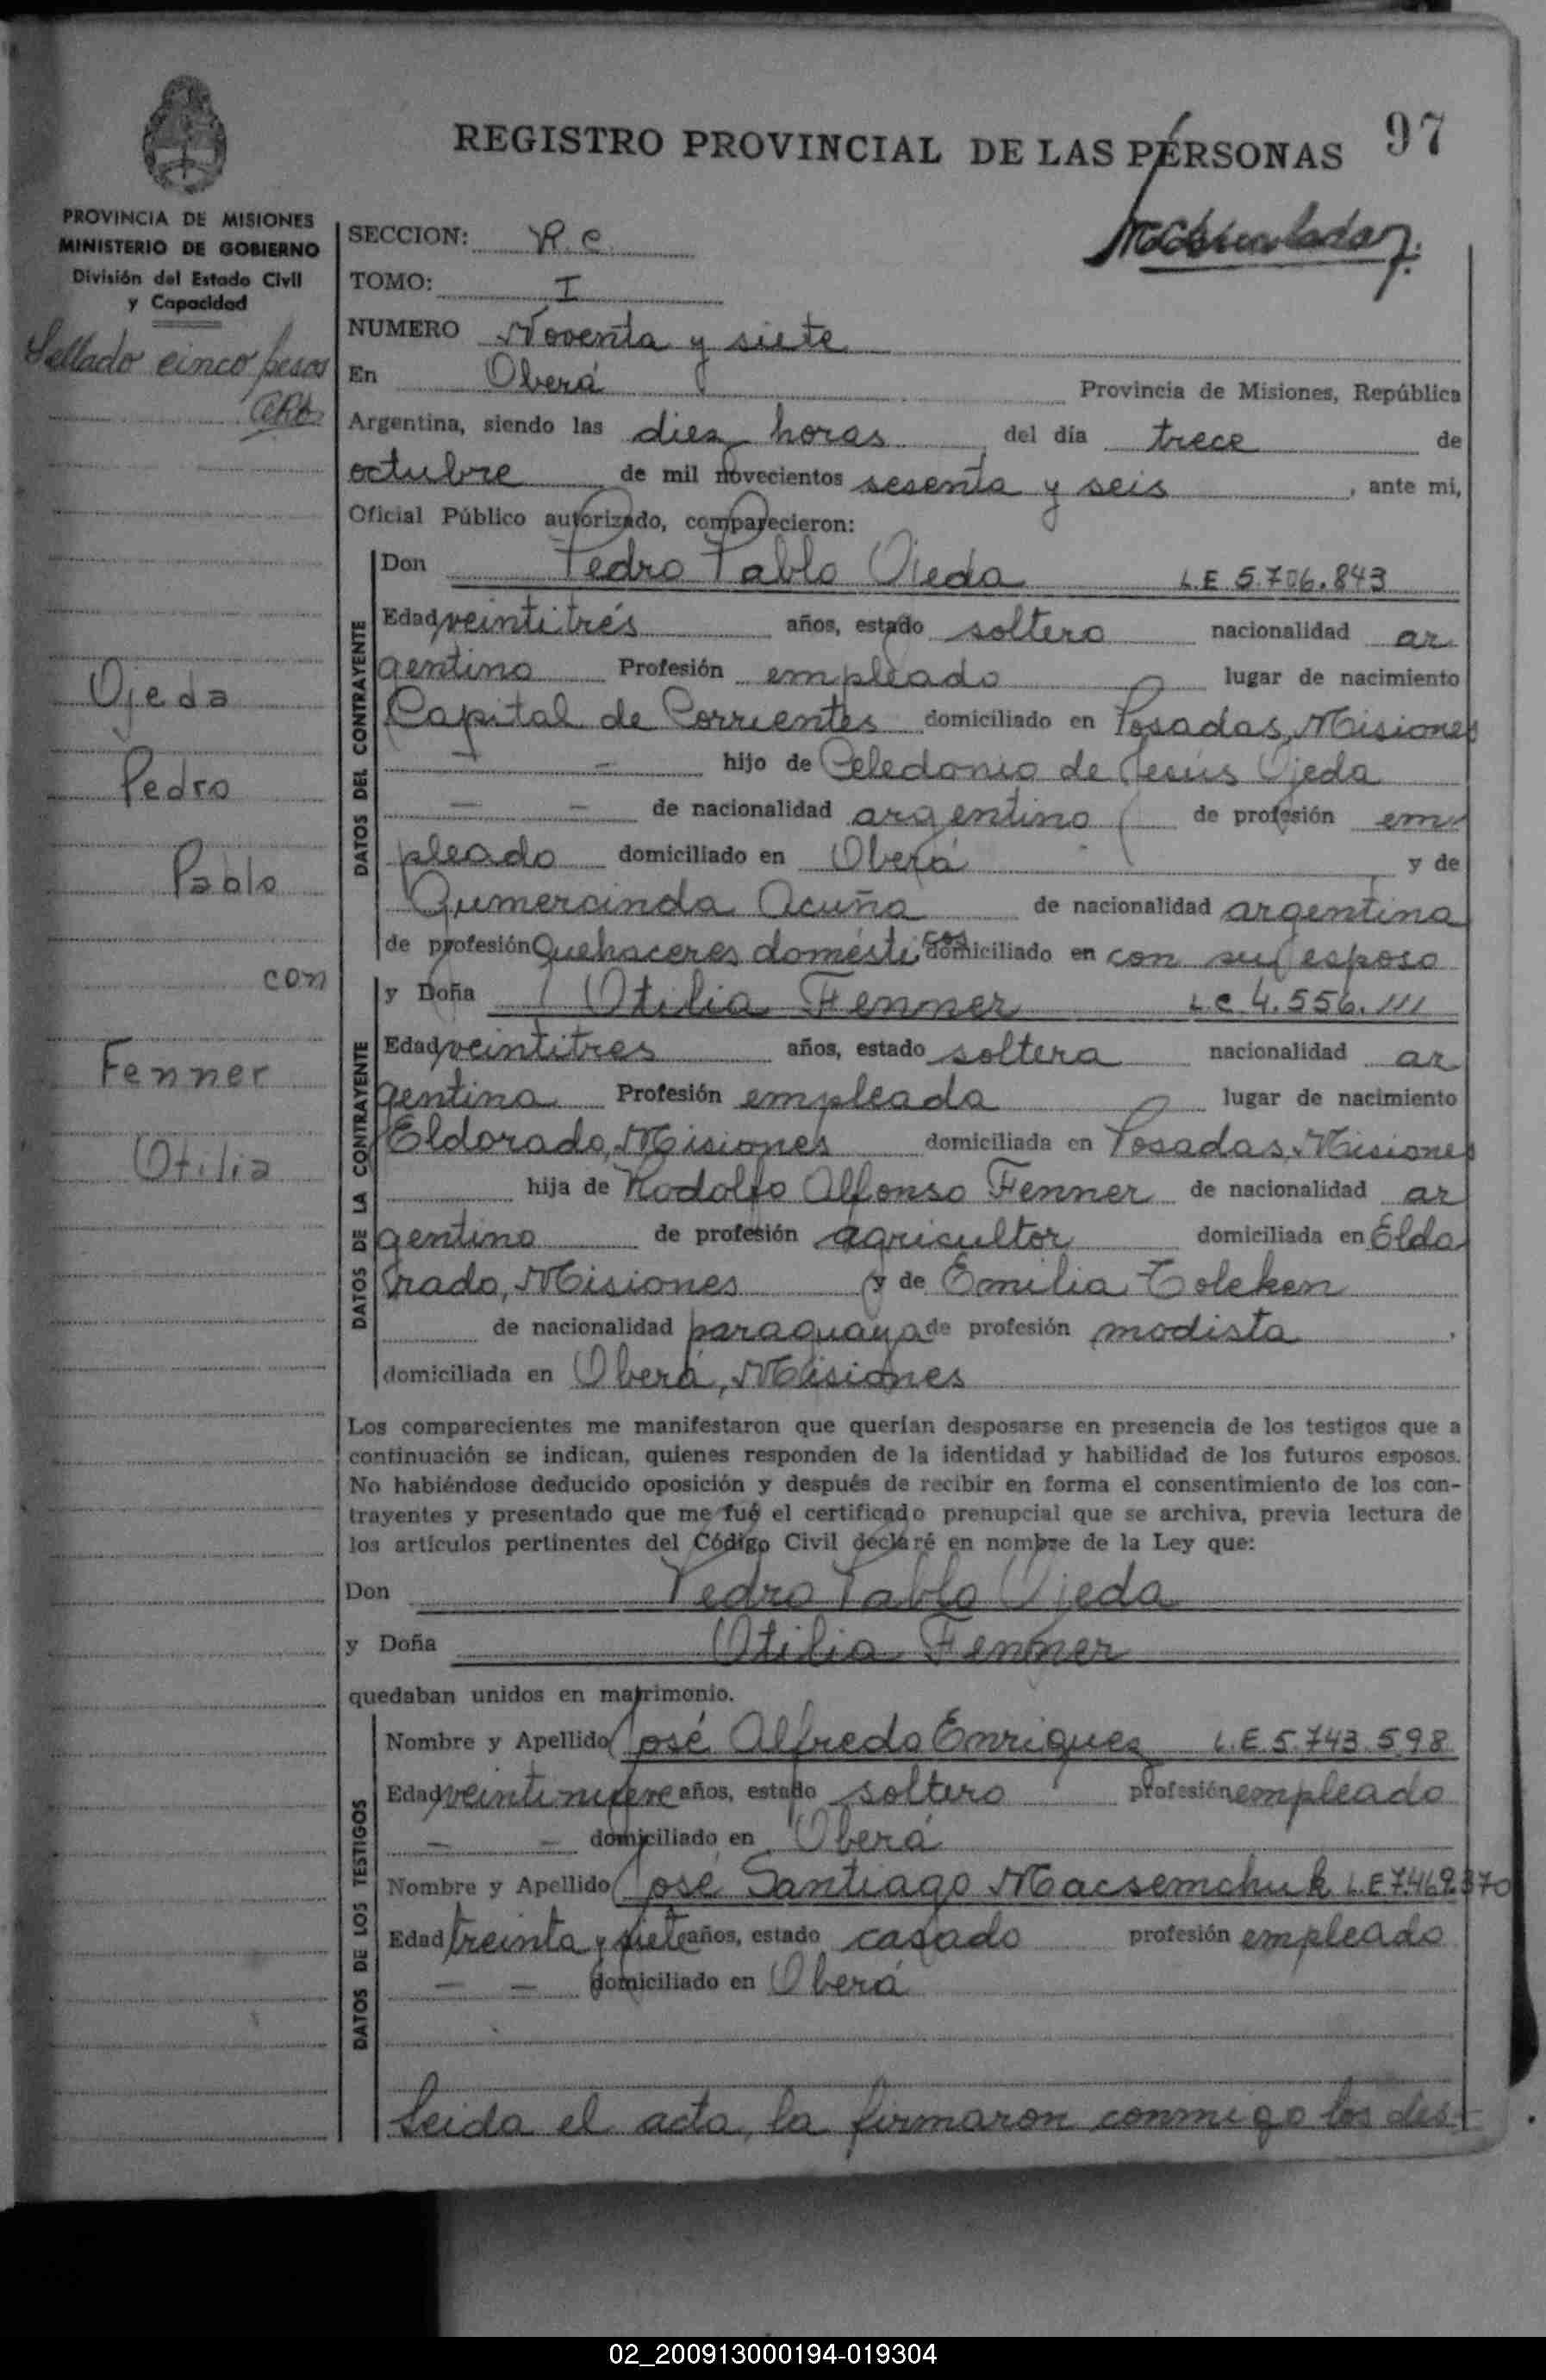 REGISTRO PROVINCIAL DE LAS PERSONAS 97
PROVINCIA DE MISIONES
MINISTERIO DE GOBIERNO
División del Estado Civil
y Capacidad
Sellado cinco pesos
Ojeda
Pedro
Pablo
con
Fenner
Otilia
SECCION: R. C.
TOMO: I
NUMERO Noventa y siete
En Oberá Provincia de Misiones, República
Argentina, siendo las diez horas del día trece de
octubre de mil novecientos sesenta y seis, ante mi,
Oficial Público autorizado, comparecieron:
DATOS DEL CONTRAYENTE
Don Pedro Pablo Ojeda L.E 5.706.843
Edad veintitrés años, estado soltero nacionalidad ar
gentino Profesión empleado lugar de nacimiento
Capital de Corrientes domiciliado en Posadas, Misiones
- - hijo de Celedonio de Jesús Ojeda
- - de nacionalidad argentino de profesión em-
pleado domiciliado en Oberá y de
Gumercinda Acuña de nacionalidad argentina
de profesión Quehaceres domésticos domiciliado en con su esposo
DATOS DE LA CONTRAYENTE
y Doña Otilia Fenner L.C 4.556.111
Edad veintitres años, estado soltera nacionalidad ar
gentina Profesión empleada lugar de nacimiento
Eldorado, Misiones domiciliada en Posadas, Misiones
hija de Rodolfo Alfonso Fenner de nacionalidad ar
gentino de profesión agricultor domiciliada en Eldo
rado, Misiones y de Emilia Toleken
de nacionalidad paraguaya de profesión modista
domiciliada en Oberá, Misiones
Los comparecientes me manifestaron que querían desposarse en presencia de los testigos que a
continuación se indican, quienes responden de la identidad y habilidad de los futuros esposos.
No habiéndose deducido oposición y después de recibir en forma el consentimiento de los con-
trayentes y presentado que me fué el certificado prenupcial que se archiva, previa lectura de
los artículos pertinentes del Código Civil declaré en nombre de la Ley que:
Don Pedro Pablo Ojeda
y Doña Otilia Fenner
quedaban unidos en matrimonio.
DATOS DE LOS TESTIGOS
Nombre y Apellido José Alfredo Enriquez L.E 5.743.598
Edad veintinueve años, estado soltero profesión empleado
- - domiciliado en Oberá
Nombre y Apellido José Santiago Macsemchuk L.E 7.469.370
Edad treinta y siete años, estado casado profesión empleado
- - domiciliado en Oberá
Leida el acta, la firmaron conmigo los des-
02_200913000194-019304